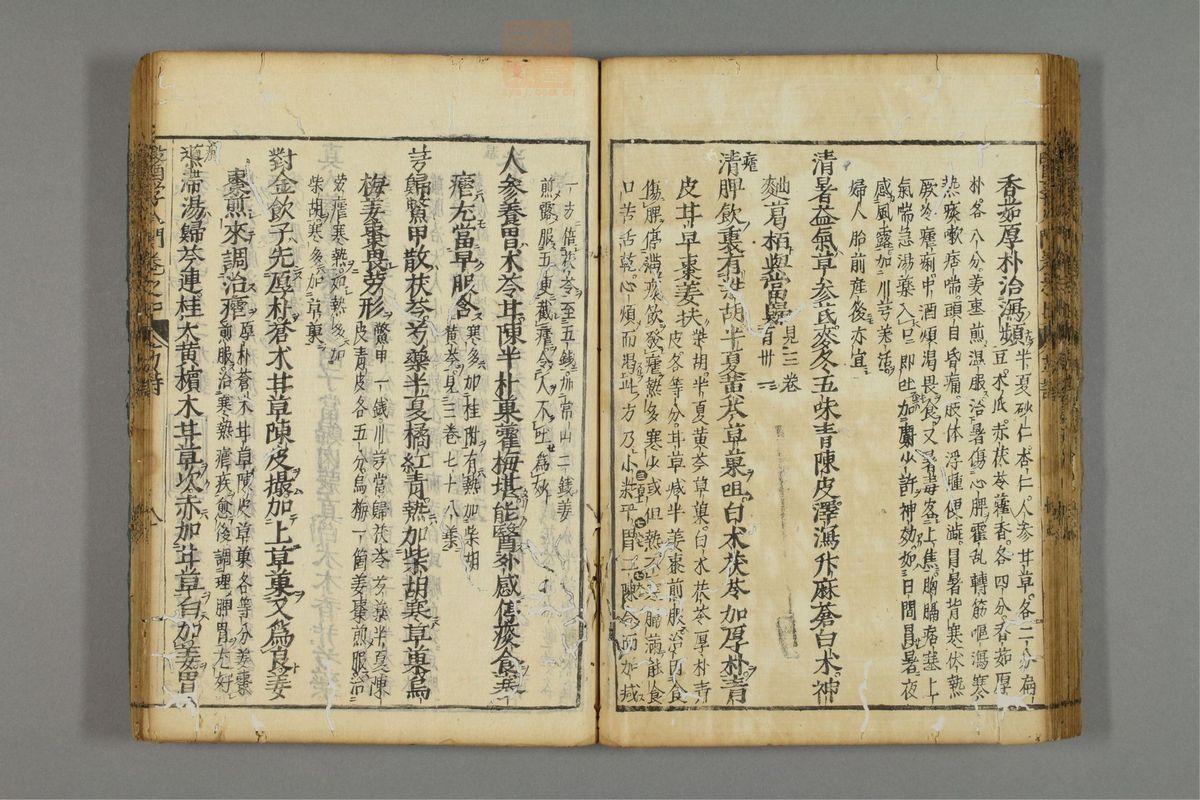 香茹厚朴治瀉頻 半夏砂仁杏仁人參甘草各二分扁
豆木瓜赤茯苓藿香各四分香茹厚
朴各八分姜棗煎温服治暑傷心脾霍乱轉筋嘔瀉寒
熱痰嗽痞喘頭目昏痛肢体浮腫便澁冒暑背寒伏熱
厥冷瘧痢中酒煩渴畏食又暑毒客上焦胸膈痞塞上
氣喘急湯藥入口即吐加麝少許神効如日間冒暑夜
感風露加川芎羌活
婦人胎前産後亦宜
清暑益氣草參芪麥冬五味青陳皮澤瀉升麻蒼白木神
麯葛栢與當歸 見三卷
百卅一
清脾飲裏有柴胡半夏黄芩草菓咀白木茯苓加厚朴青
皮甘草棗姜扶 柴胡半夏黄芩草菓白木茯苓厚朴青
皮各等分甘草减半姜棗煎服治因食
傷脾停滯痰飲發瘧熱多寒少或但熱不寒膈滿能食
口苦舌乾心煩而渴此方乃小柴平胃二陳合而加减
一方倍茯苓至五錢加常山二錢姜
煎露服五更截瘧令人不吐爲妙
人參養胃木苓甘陳半朴菓藿梅堪能醫外感傷痰食寒
瘧尤當早服含 寒多加桂附有熱加柴胡
黄芩見三卷七十八葉
芎歸鱉甲散茯苓芍藥半夏橘紅青熱加柴胡寒草菓烏
梅姜棗畏勞形 鱉甲一錢川芎當歸茯苓芍藥半夏陳
皮青皮各五分烏梅一箇姜棗煎服治
勞瘧寒熱如熱多加
柴胡寒多加草菓
對金飲子先厚朴蒼木甘草陳皮撮加上草菓又爲良姜
棗煎來調治瘧 厚朴蒼木甘草陳皮草菓各等分姜棗
煎服治寒熱瘧疾愈後調理脾胃尤好
導滯湯歸芩連桂大黄檳木甘草次赤加甘草白加姜胃